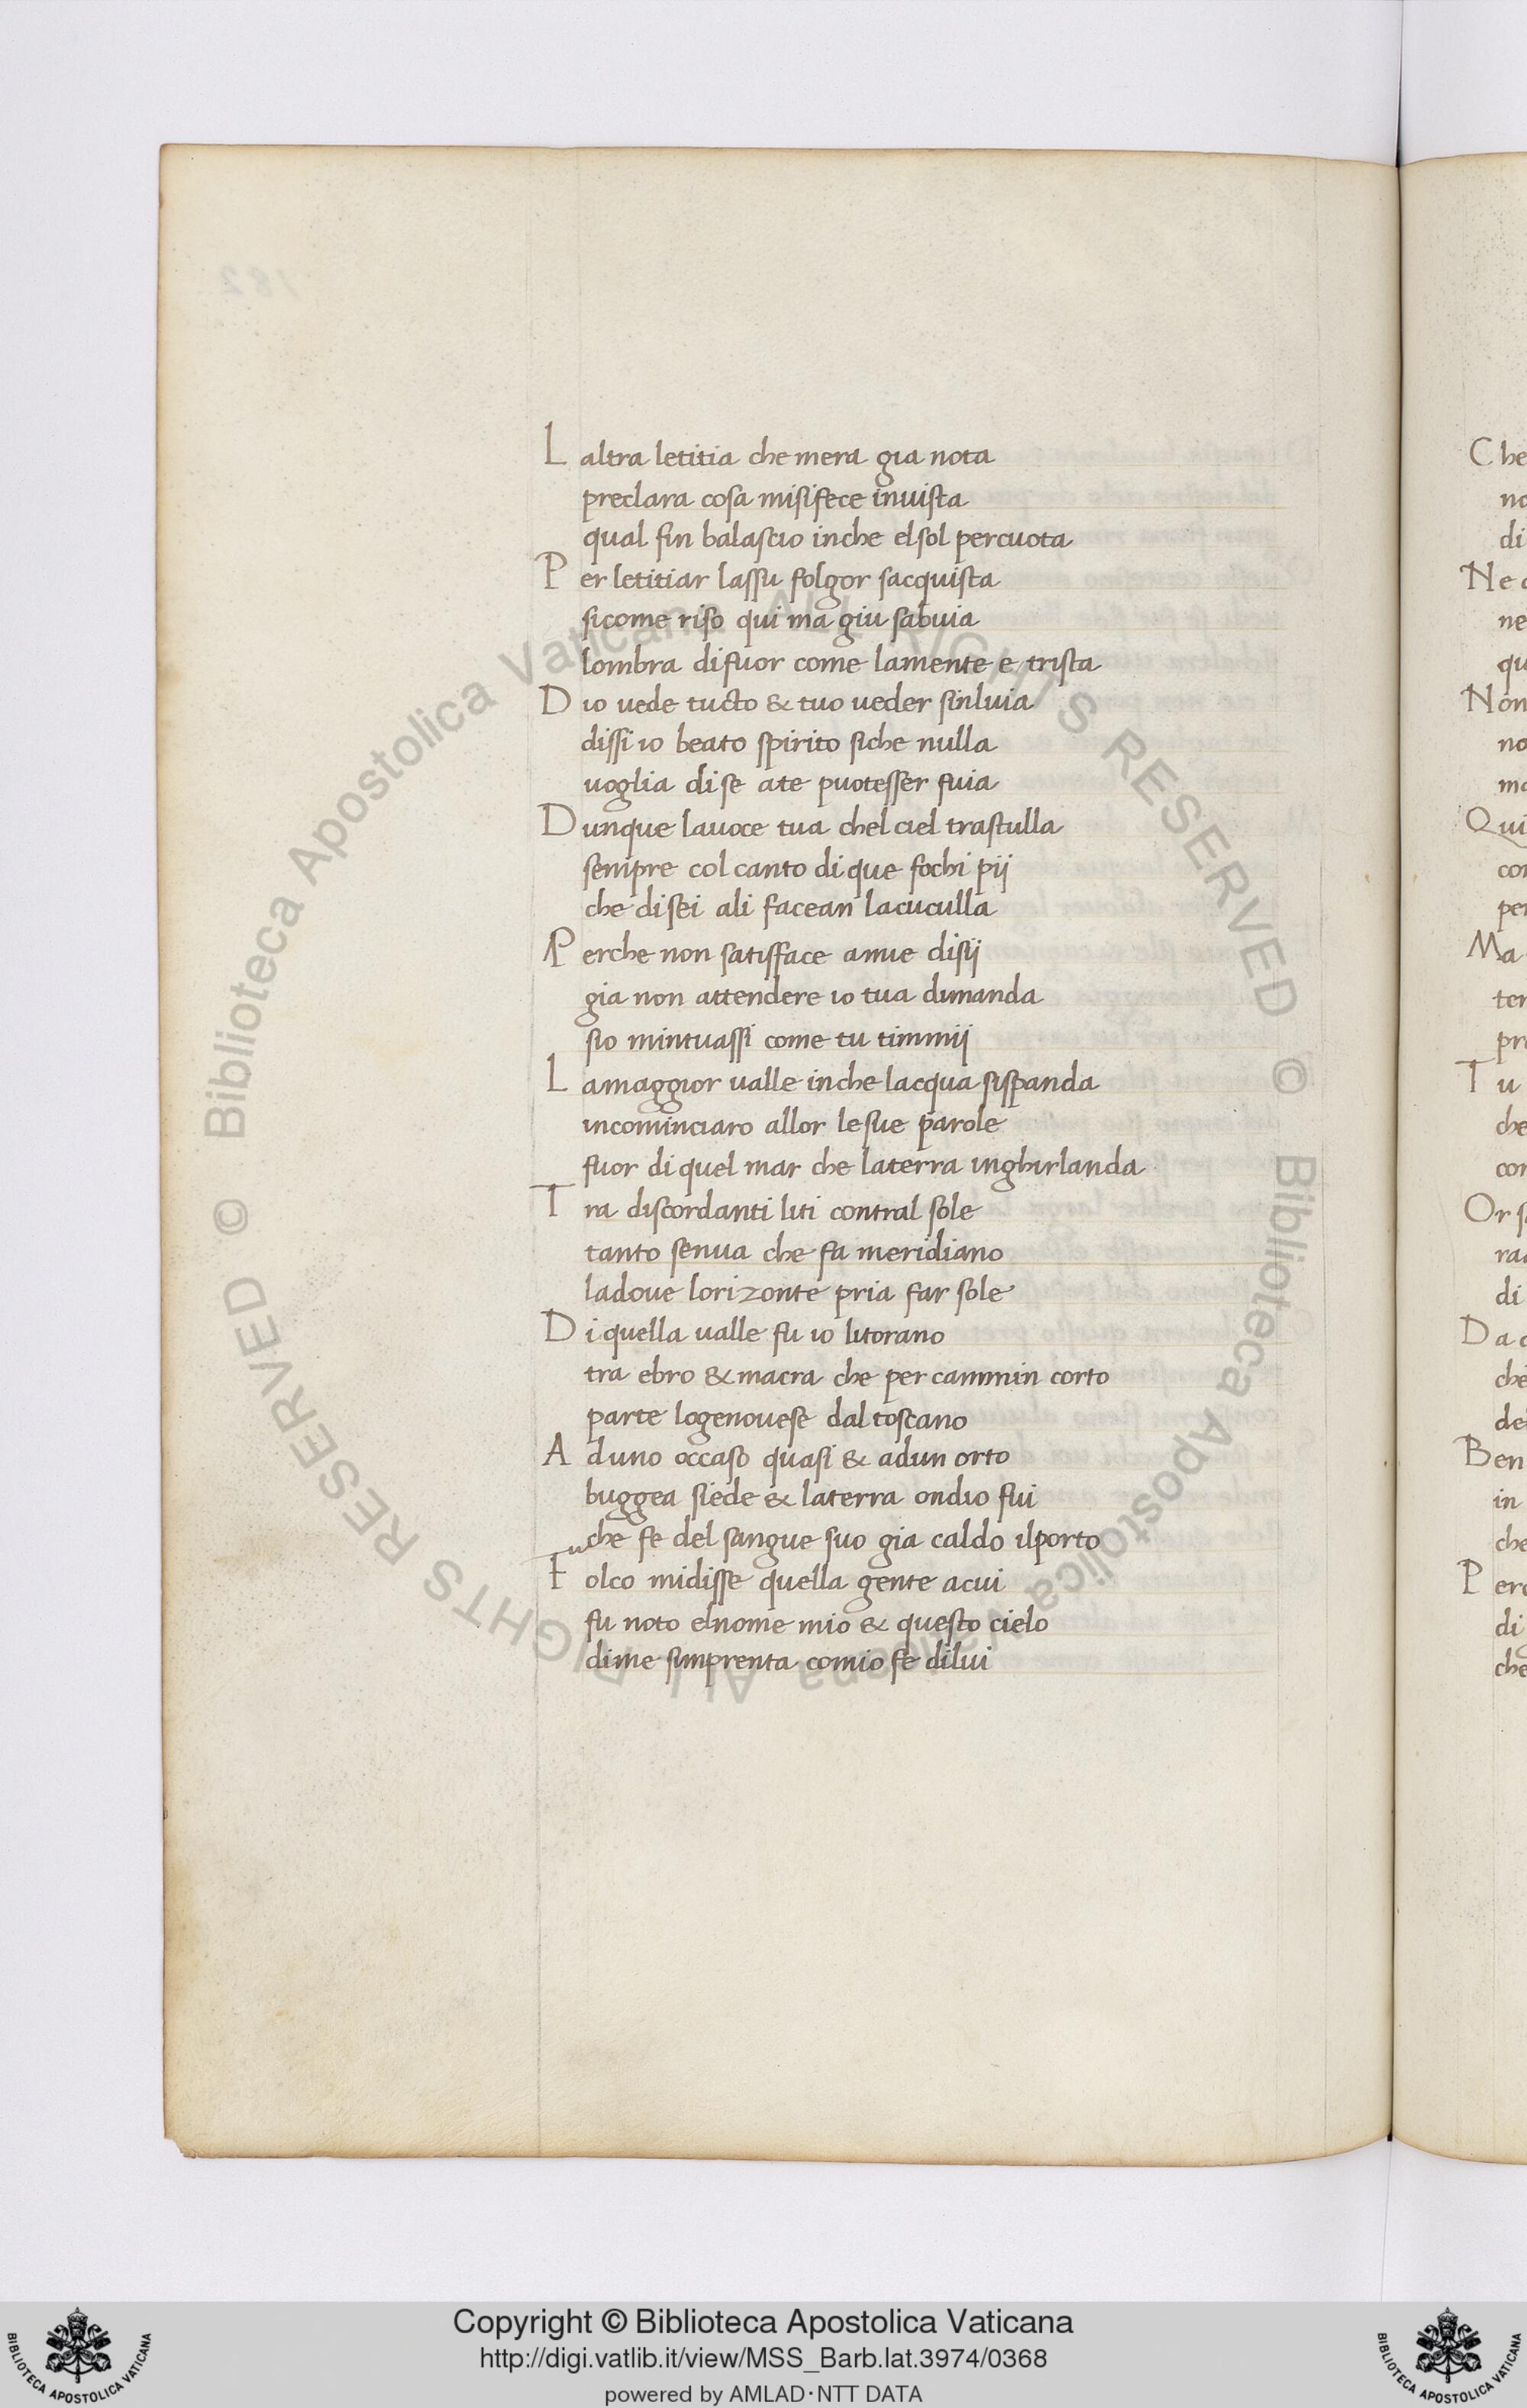 L altra letitia che mera gia nota
preclara cosa misifece inuista
qual fin balascio inche elsol percuota
P er letitiar lassu folgor sacquista
sicome riso qui ma giu sabuia
lombra difuor come lamente e trista
D io uede tucto & tuo ueder sinluia
dissi io beato spirito siche nulla
uoglia dise ate puotesser fuia
D unque lauoce tua chel ciel trastulla
sempre col canto di que fochi pij
che disei ali facean lacuculla
P erche non satisface amie disij
gia non attendere io tua dimanda
sio mintuassi come tu timmij
L amaggior ualle inche lacqua sispanda
incominciaro allor lesue parole
fuor di quel mar che laterra inghirlanda
T ra discordanti liti contral sole
tanto senua che fa meridiano
ladoue lorizonte pria far sole
D i quella ualle fu io litorano
tra ebro & macra che per cammin corto
parte logenouese dal toscano
A duno occaso quasi & adun orto
buggea siede & laterra ondio fui
che fe del sangue suo gia caldo ilporto
F olco midisse quella gente acui
fu noto elnome mio & questo cielo
dime simprenta comio fe dilui
Che
no
di
Ne
ne
qu
Non
no
ma
Qui
con
per
Ma
ter
pr
Tu
che
con
Or s
ra
di
Da
che
de
Ben
in
che
Perc
di
che
182
© Biblioteca Apostolica Vaticana ALL RIGHTS RESERVED © Biblioteca Apostolica Vaticana ALL RIGHTS RESERVED
Copyright © Biblioteca Apostolica Vaticana
http://digi.vatlib.it/view/MSS_Barb.lat.3974/0368
powered by AMLAD·NTT DATA
BIBLIOTECA APOSTOLICA VATICANA
BIBLIOTECA APOSTOLICA VATICANA